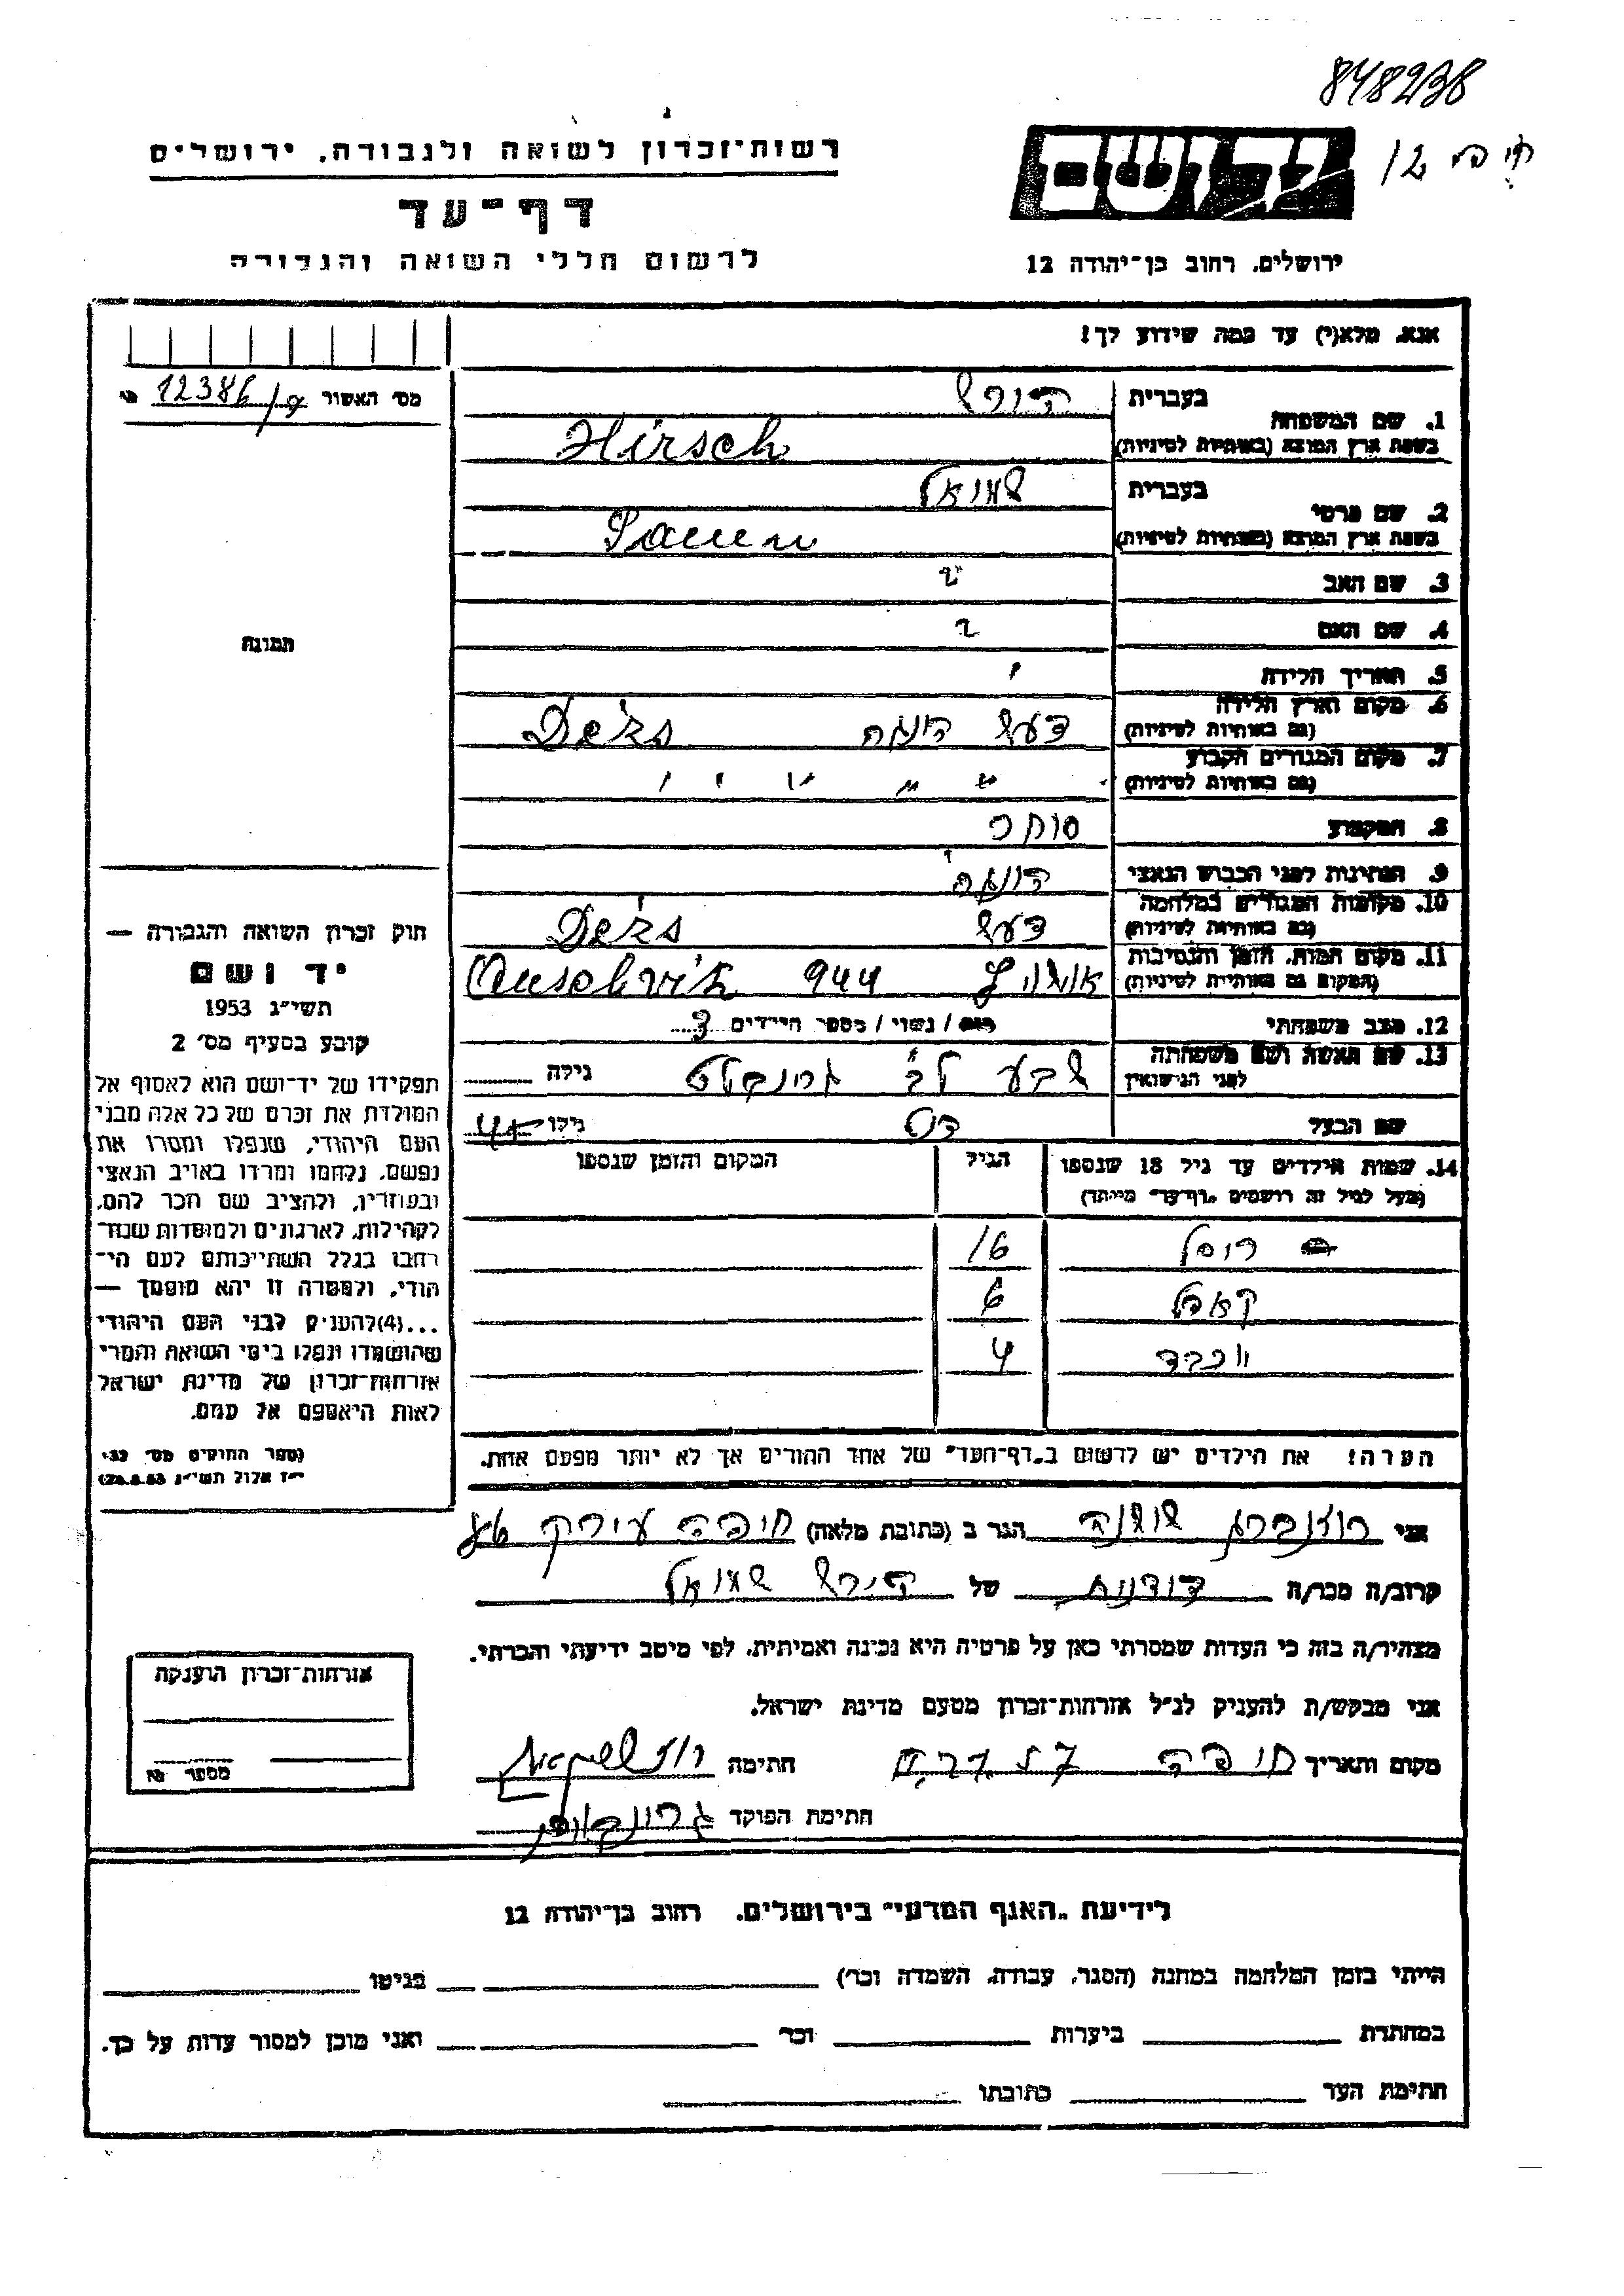 848238
חיפה 12
רשות־זכרון לשואה ולגבורה, ירושלים
דף־עד
לרשום חללי השואה והגבורה
ידושם
ירושלים, רחוב בן־יהודה 12
אנא, מלא(י) עד כמה שידוע לך!
מס׳ האשור 12386/ק
1. שם המשפחה
בעברית הירש
בשפת ארץ המוצא (באותיות לטיניות) Hirsch
2. שם פרטי
בעברית שמואל
בשפת ארץ המוצא (באותיות לטיניות)
3. שם האב
4. שם האם
5. תאריך הלידה
6. מקום וארץ הלידה
(גם באותיות לטיניות) דעז׳ הונגר׳
7. מקום המגורים הקבוע
(גם באותיות לטיניות) " " " " "
8. המקצוע סוחר
9. הנתינות לפני הכבוש הנאצי הונגר׳
10. מקומות המגורים במלחמה
(גם באותיות לטיניות)
11. מקום המות, הזמן והנסיבות
(המקום גם באותיות לטיניות) 944
12. מצב משפחתי רווק / נשוי / מספר הילדים 3
13. שם האשה ושם משפחתה
לפני הנישואין שבע גרונבלט גילה
שם הבעל גילו
14. שמות הילדים עד גיל 18 שנספו
(מעל לגיל זה רושמים „דף־עד״ מיוחד)
הגיל
המקום והזמן שנספו
16
6
יוכבד 4
הערה! את הילדים יש לרשום ב„דף־העד״ של אחד ההורים אך לא יותר מפעם אחת.
תמונה
חוק זכרון השואה והגבורה —
יד ושם
תשי״ג 1953
קובע בסעיף מס׳ 2
תפקידו של יד־ושם הוא לאסוף אל
המולדת את זכרם של כל אלה מבני
העם היהודי, שנפלו ומסרו את
נפשם, נלחמו ומרדו באויב הנאצי
ובעוזריו, ולהציב שם וזכר להם,
לקהילות, לארגונים ולמוסדות שנח־
רבו בגלל השתייכותם לעם הי־
הודי, ולמטרה זו יהא מוסמך —
...(4)להעניק לבני העם היהודי
שהושמדו ונפלו בימי השואה והמרי
אזרחות־זכרון של מדינת ישראל
לאות היאספם אל עמם.
(ספר החוקים מס׳ 132,
י״ז אלול תשי״ג 28.8.53)
אני רוזנברג שושנה הגר ב (כתובת מלאה) חיפה
קרוב/ה מכר/ה דודנית של הירש שמואל
מצהיר/ה בזה כי העדות שמסרתי כאן על פרטיה היא נכונה ואמיתית, לפי מיטב ידיעתי והכרתי.
אני מבקש/ת להעניק לנ״ל אזרחות־זכרון מטעם מדינת ישראל.
מקום ותאריך חיפה חתימה
חתימת הפוקד
אזרחות־זכרון הוענקה
מספר
לידיעת „האגף המדעי״ בירושלים, רחוב בן־יהודה 12
הייתי בזמן המלחמה במחנה (הסגר, עבודה, השמדה וכו׳) בגיטו
במחתרת ביערות וכו׳ ואני מוכן למסור עדות על כך.
חתימת העד כתובתו